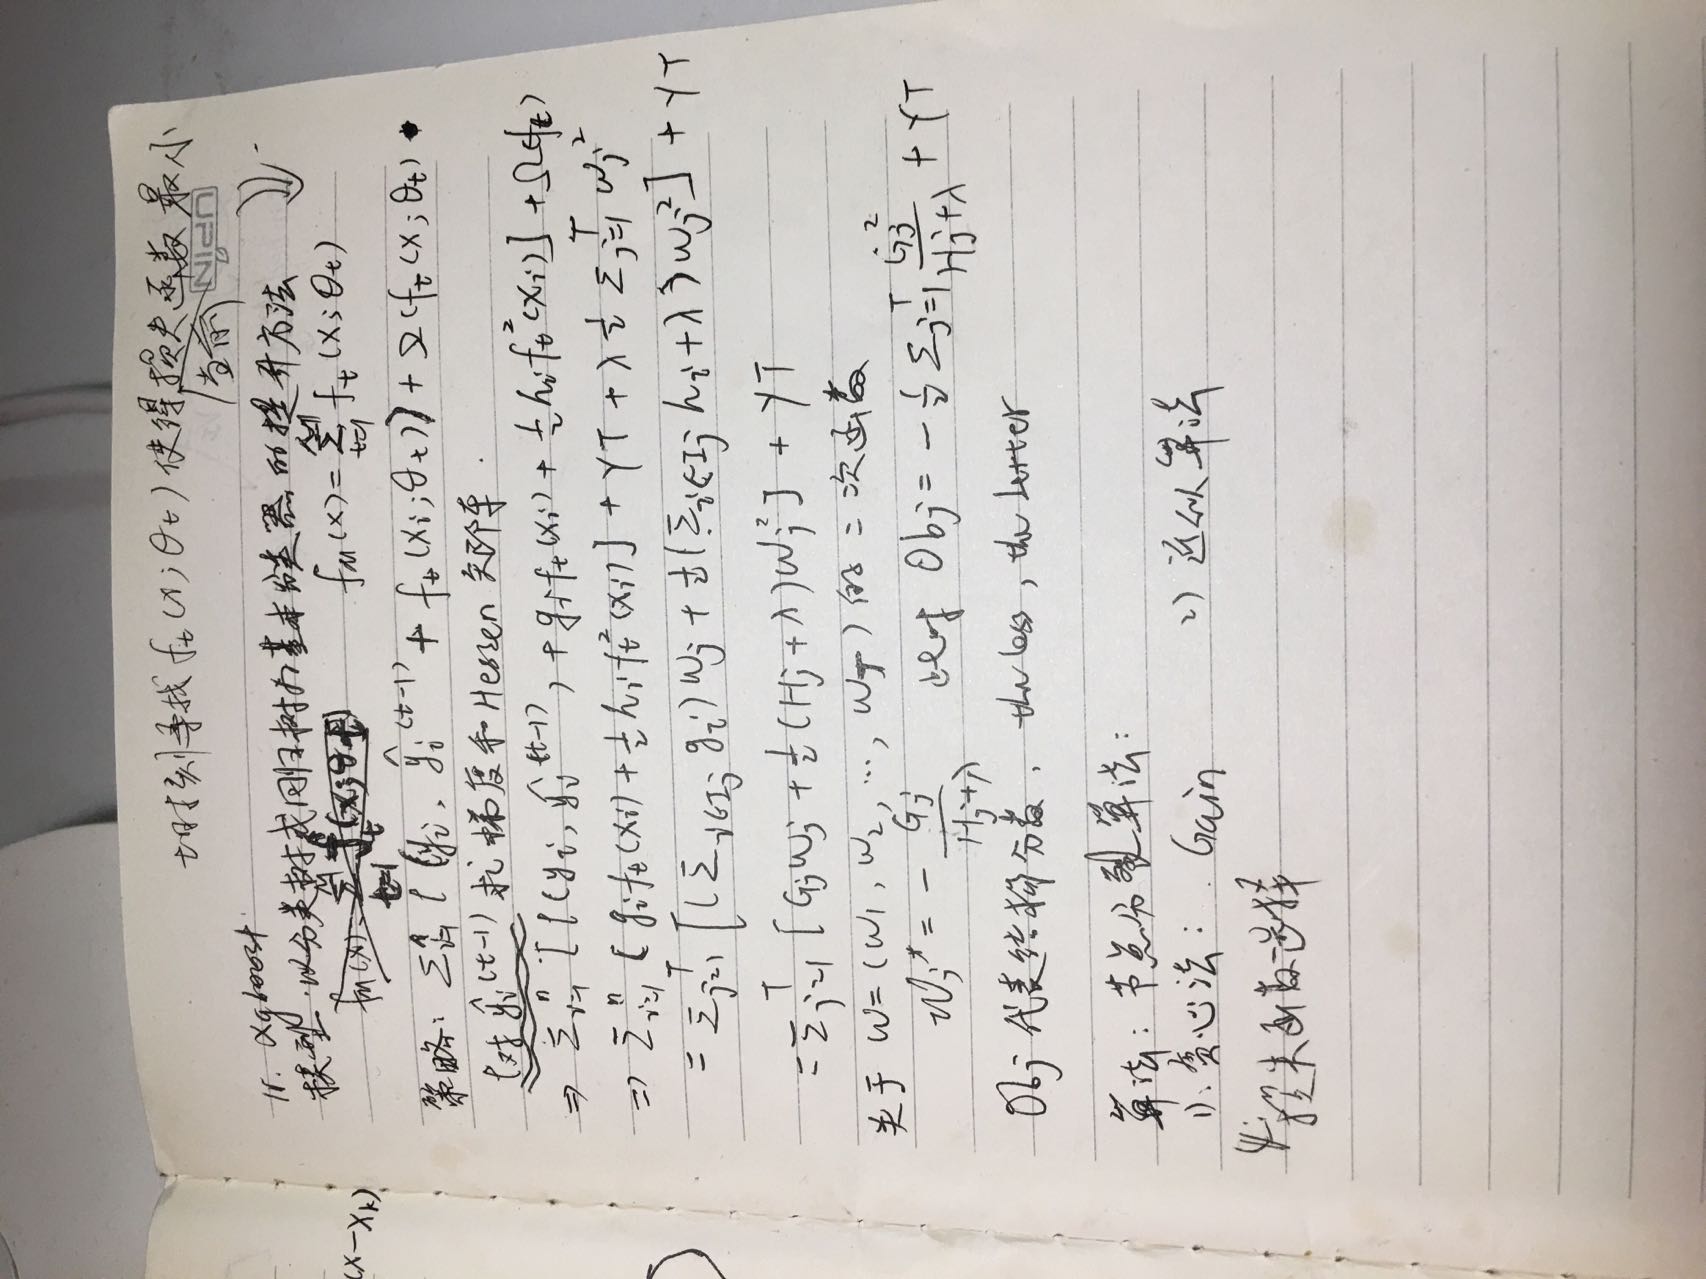 t时刻寻找 f_t(x;θ_t) 使得损失函数最小
当前
UPIN
11. xgboost
模型:以分类树或回归树为基本分类器的提升方法
f_M(x) = Σ_{t=1}^M f_t(x;θ_t)
f_M(x) = Σ_{t=1}^M f_t(x;θ_t)
(x-x_k)
策略: Σ_{i=1}^n l(y_i, ŷ_i^{(t-1)} + f_t(x_i;θ_t)) + Ω(f_t(x;θ_t)
l对 ŷ_i^{(t-1)} 求梯度和Hessen矩阵.
⇒ Σ_{i=1}^n [l(y_i, ŷ_i^{(t-1)}) + g_i f_t(x_i) + ½ h_i f_t²(x_i)] + Ω(f_t)
⇒ Σ_{i=1}^n [g_i f_t(x_i) + ½ h_i f_t²(x_i)] + γT + λ ½ Σ_{j=1}^T w_j²
= Σ_{j=1}^T [(Σ_{i∈I_j} g_i) w_j + ½(Σ_{i∈I_j} h_i + λ) w_j²] + γT
= Σ_{j=1}^T [G_j w_j + ½(H_j + λ) w_j²] + γT
关于 w=(w_1, w_2, ..., w_T) 的二次函数
w_j^* = - G_j/(H_j+λ) 此时 Obj = -½ Σ_{j=1}^T G_j²/(H_j+λ) + γT
Obj 代表结构分数, the less, the better
算法: 节点分裂算法:
1). 贪心法: Gain 2) 近似算法
损失函数选择